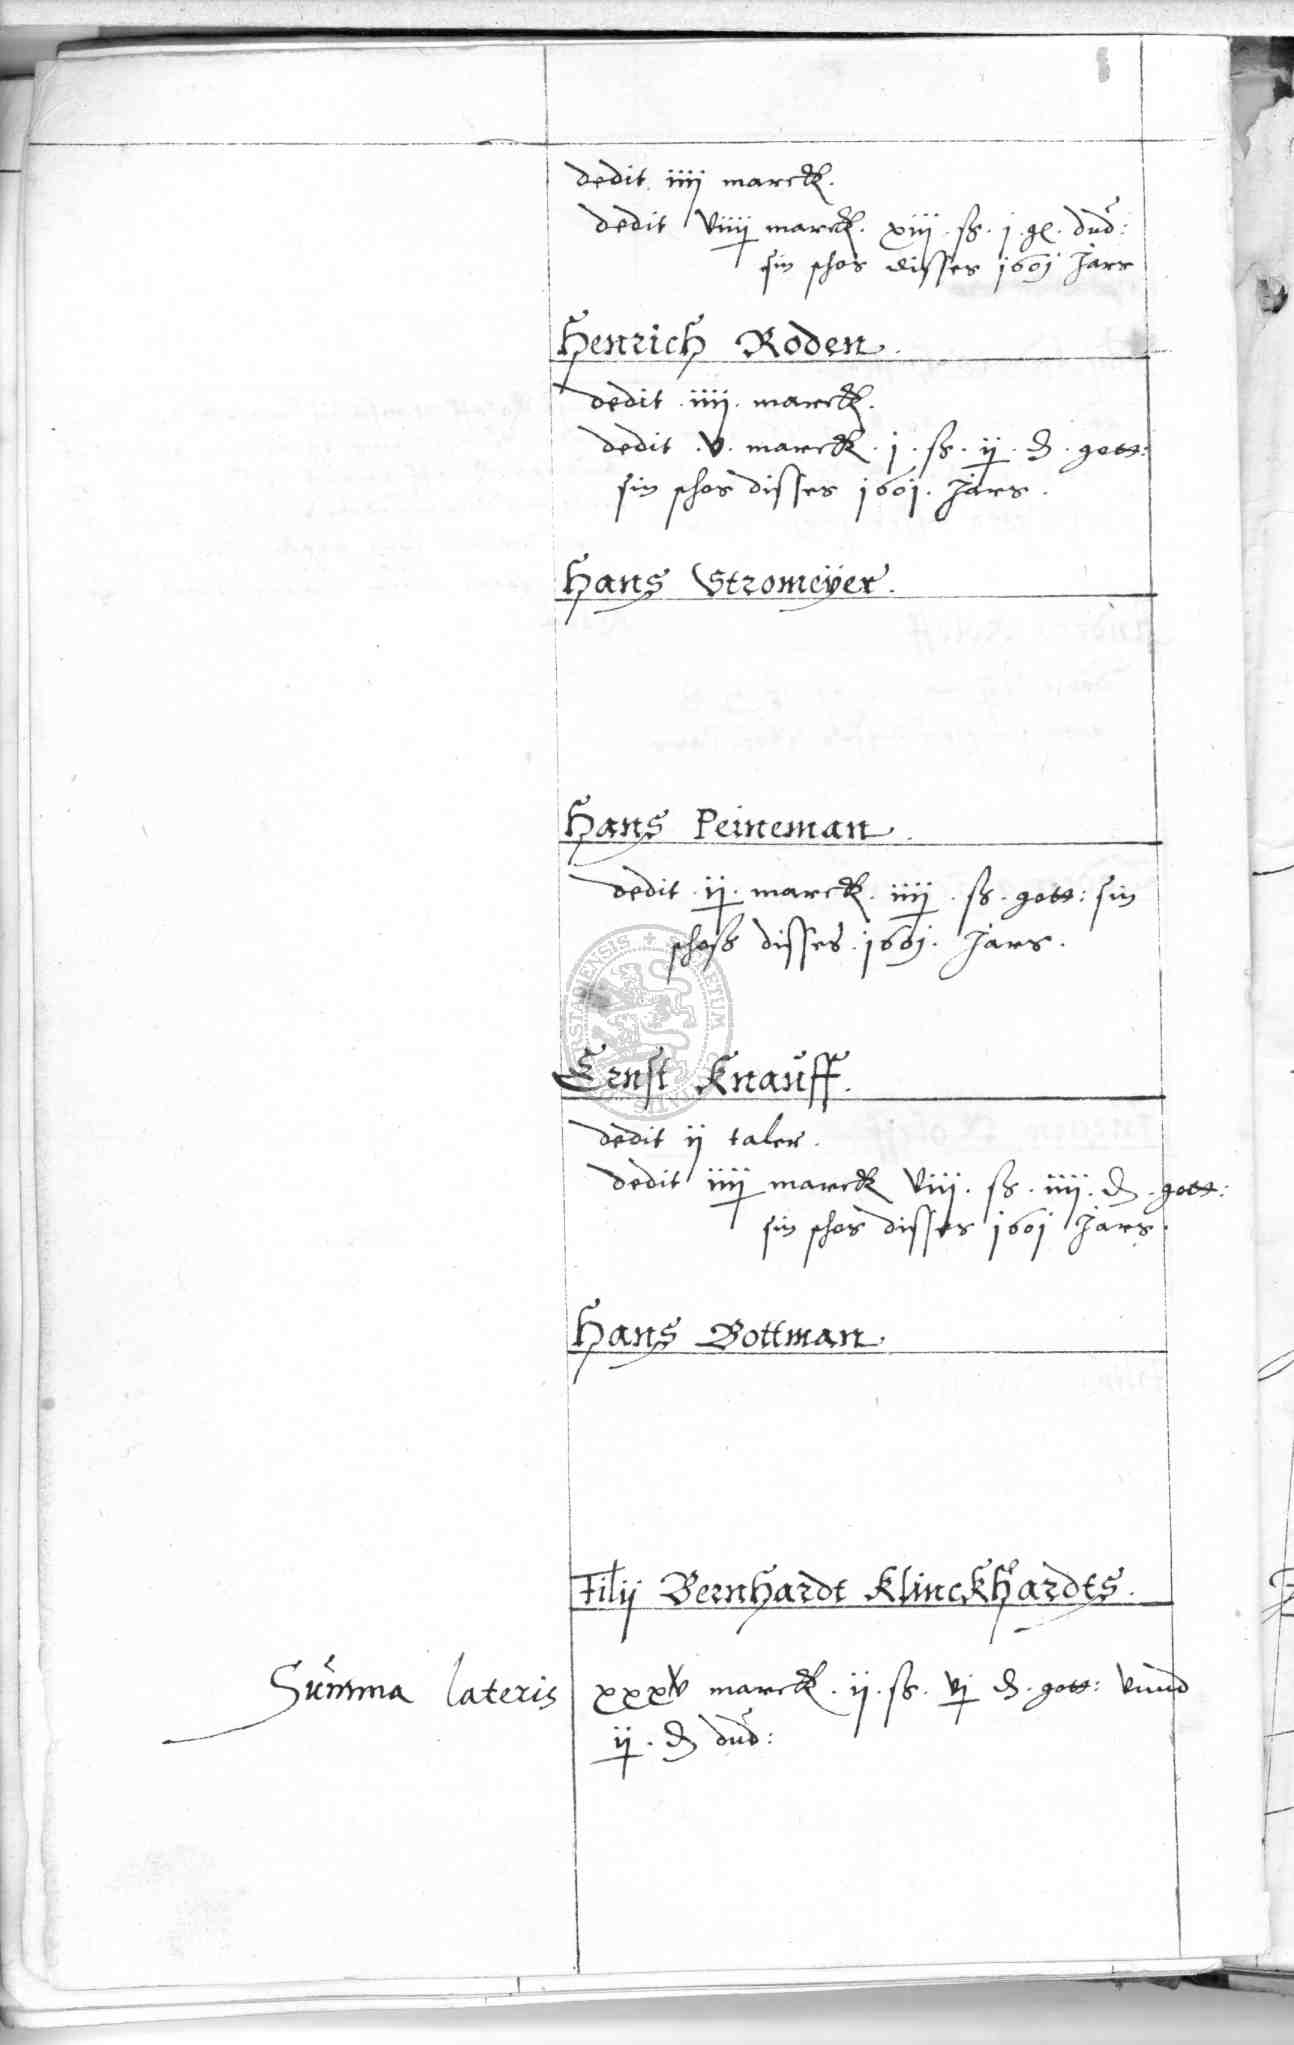 dedit iiij marck.
dedit viiij marck. xiij. ß. j. gl. dud:
sin schos disses 1601 Jars
Henrich Roden.
dedit. iiij. marck.
dedit. v. marck. j. ß. ij. d. gott:
sin schos disses 1601. Jars.
Hans Stromeÿer.
Hans Peineman.
dedit. ij. marck. iiij. ß. gott: sin
schoß disses. 1601. Jars.
Ernst Knauff.
dedit ij taler.
dedit iiij marck viij. ß. iiij. d. gott:
sin schos disses 1601 Jars.
Hans Bottman.
Filij Bernhardt Klinckhardts.
Summa lateris xxxv marck. ij. ß. vj d. gott: vnnd
ij. d dud: